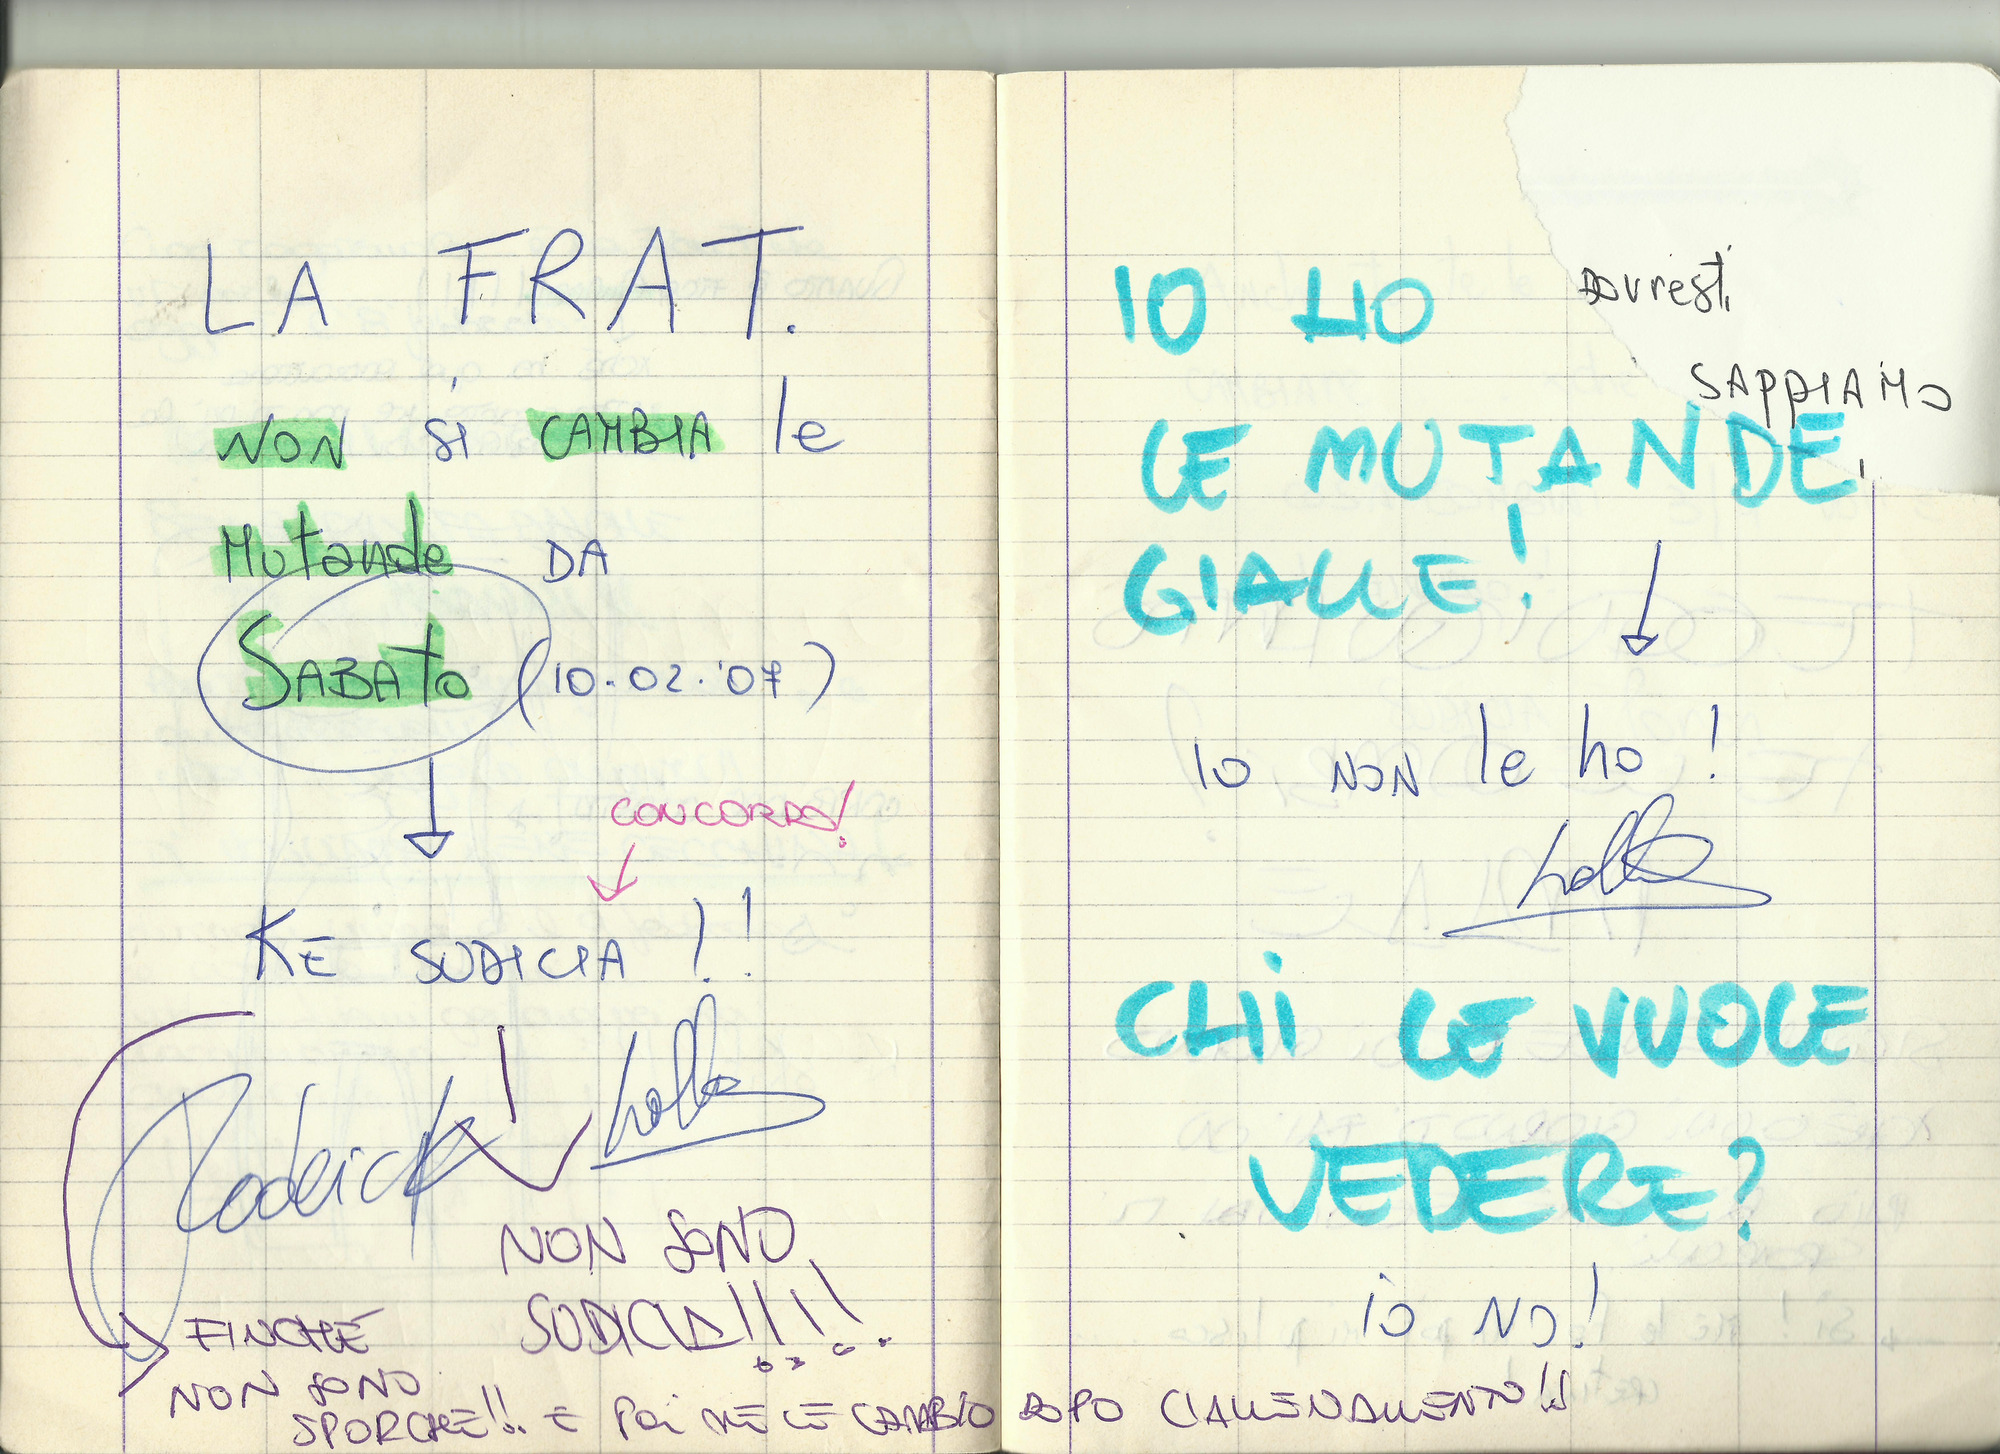 LA FRAT.
NON Si CAMBIA le
Mutande DA
SABAto (10.02.'07)
CONCORDO!
KE SUDICIA !!
Rodrick
NON SONO
SUDICIA!!!!
FINCHÉ
NON SONO
SPORCHE!!. E POi ME LE CAMBIO DOPO L'ALLENAMENTO!!
DOVresti
SAPPIAMO
IO HO
LE MUTANDE
GIALLE!
IO NON le ho!
CHi LE VUOLE
VEDERE?
iO NO!